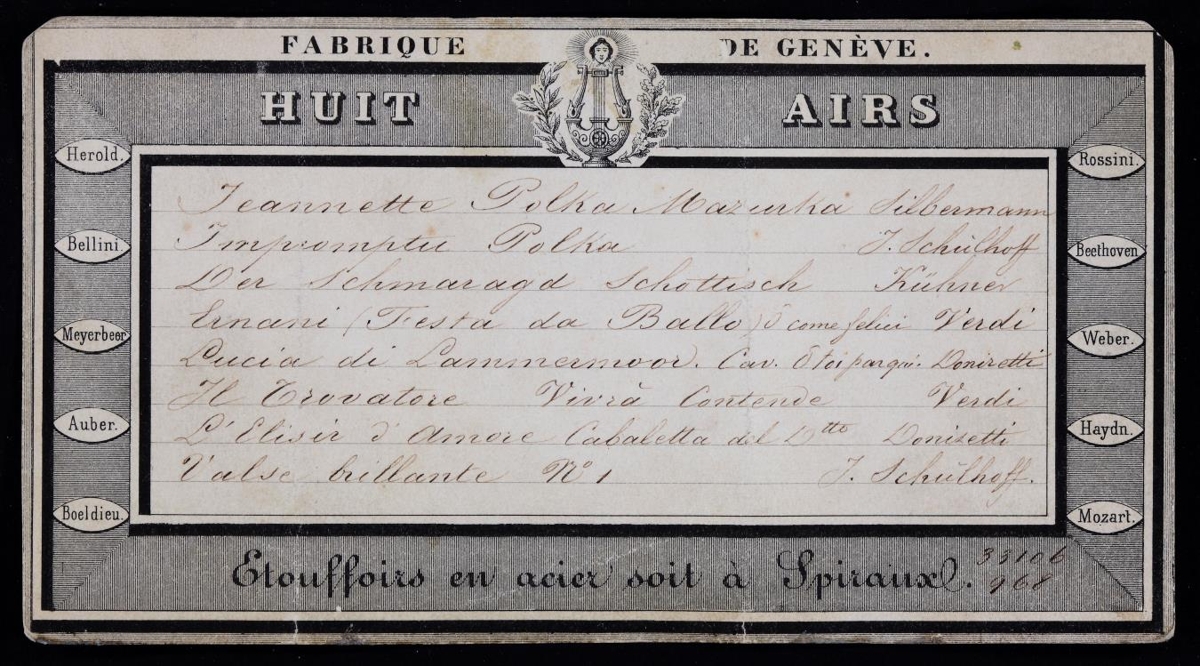 FABRIQUE DE GENÈVE.
HUIT AIRS
Herold.
Bellini.
Meyerbeer
Auber.
Boeldieu.
Jeannette Polka Mazurka Silbermann
Impromptu Polka J. Schulhoff
Der Schmaragd Schottisch Kühner
Ernani (Festa da Ballo) ô come felici Verdi
Lucia di Lammermoor. Cav. Donizetti
Il Trovatore Vivrà Contende Verdi
L'Elisir d'Amore Cabaletta del Dtto Donizetti
Valse brillante No 1 J. Schulhoff.
Rossini.
Beethoven
Weber.
Haydn.
Mozart.
Etouffoirs en acier soit à Spiraux.
33106
968